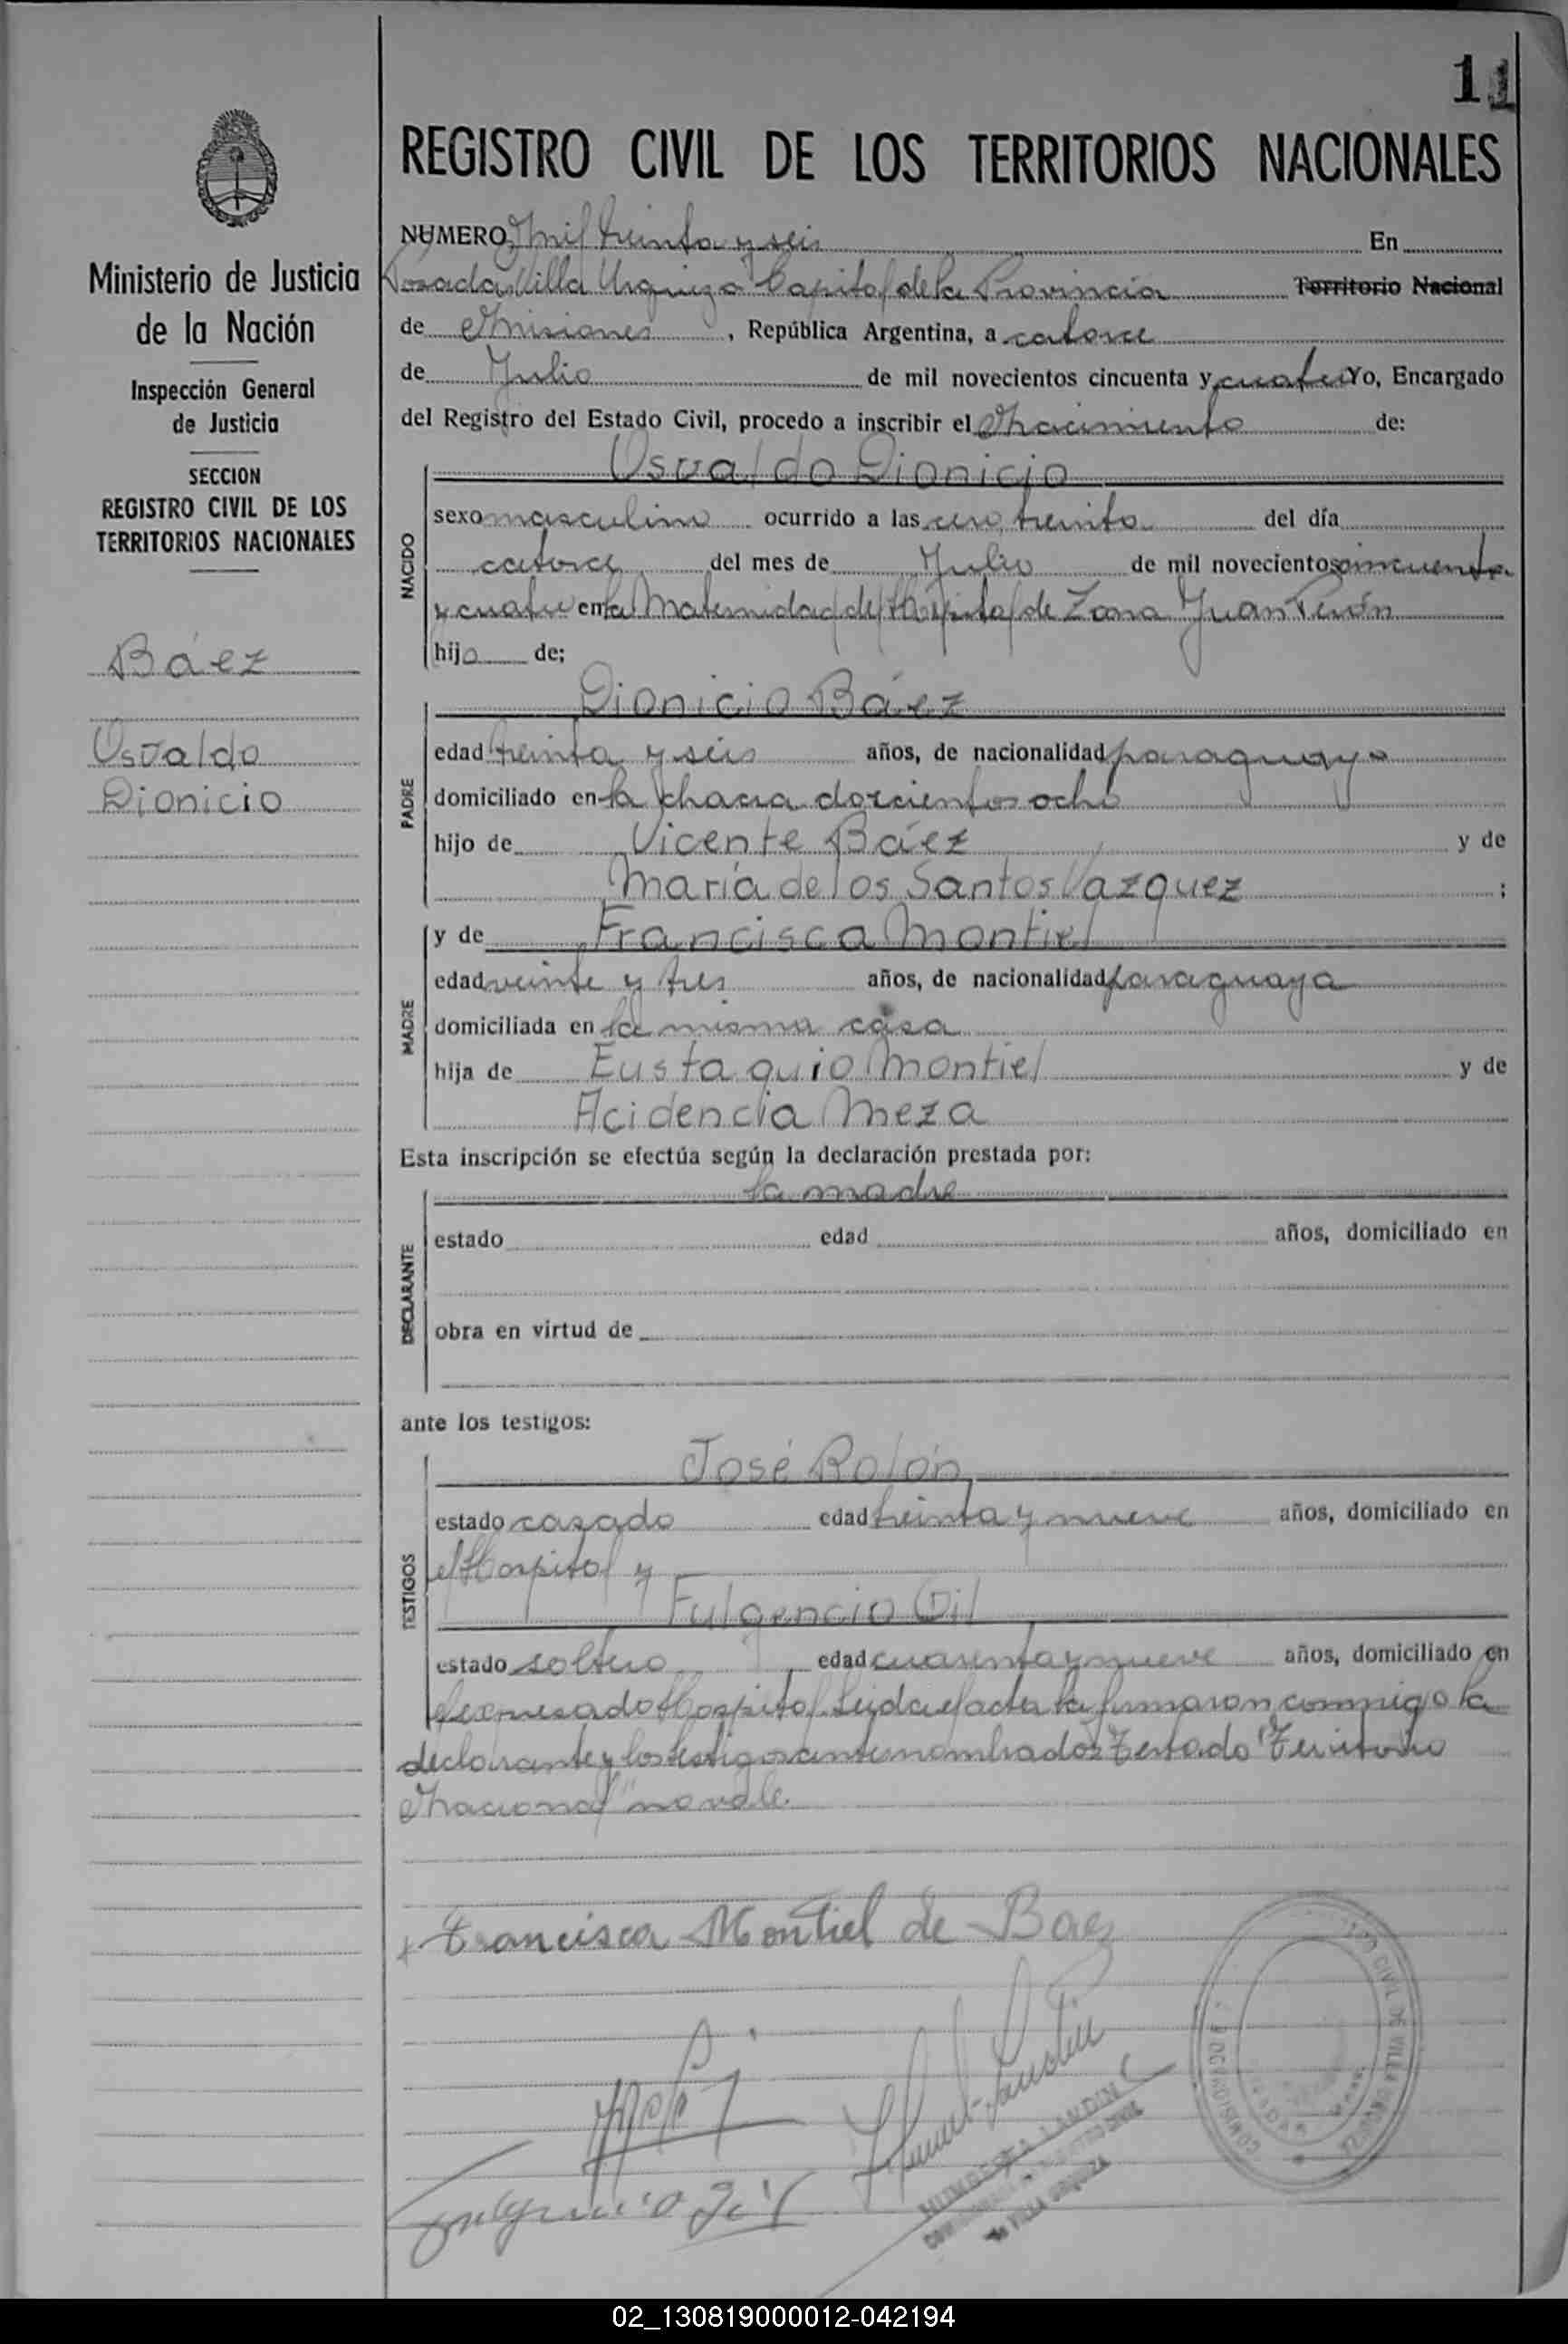 11
REGISTRO CIVIL DE LOS TERRITORIOS NACIONALES
Ministerio de Justicia
de la Nación
Inspección General
de Justicia
SECCION
REGISTRO CIVIL DE LOS
TERRITORIOS NACIONALES
Báez
Osvaldo
Dionicio
NUMERO mil treinta y seis En
Posadas Villa Urquiza Capital de la Provincia Territorio Nacional
de Misiones, República Argentina, a catorce
de Julio de mil novecientos cincuenta y cuatro Yo, Encargado
del Registro del Estado Civil, procedo a inscribir el Nacimiento de:
Osvaldo Dionicio
NACIDO
sexo masculino ocurrido a las cero treinta del día
catorce del mes de Julio de mil novecientos cincuenta
y cuatro en la Maternidad del Hospital de Zona Juan Perón
hijo de;
Dionicio Báez
PADRE
edad treinta y seis años, de nacionalidad paraguayo
domiciliado en la chacra doscientos ocho
hijo de Vicente Báez y de
María de los Santos Vazquez ;
y de Francisca Montiel
MADRE
edad veinte y tres años, de nacionalidad paraguaya
domiciliada en la misma casa
hija de Eustaquio Montiel y de
Acidencia Meza
Esta inscripción se efectúa según la declaración prestada por:
la madre
DECLARANTE
estado edad años, domiciliado en
obra en virtud de
ante los testigos:
José Rolón
TESTIGOS
estado casado edad treinta y nueve años, domiciliado en
el Hospital y
Fulgencio Gil
estado soltero edad cuarenta y nueve años, domiciliado en
el expresado Hospital. Leida el acta la firmaron conmigo la
declarante y los testigos antes nombrados Testado "Territorio
Nacional" no vale.
Francisca Montiel de Baez
Fulgencio Gil
HUMBERTO LANDINI
VILLA URQUIZA
CIVIL DE VILLA URQUIZA
02_130819000012-042194